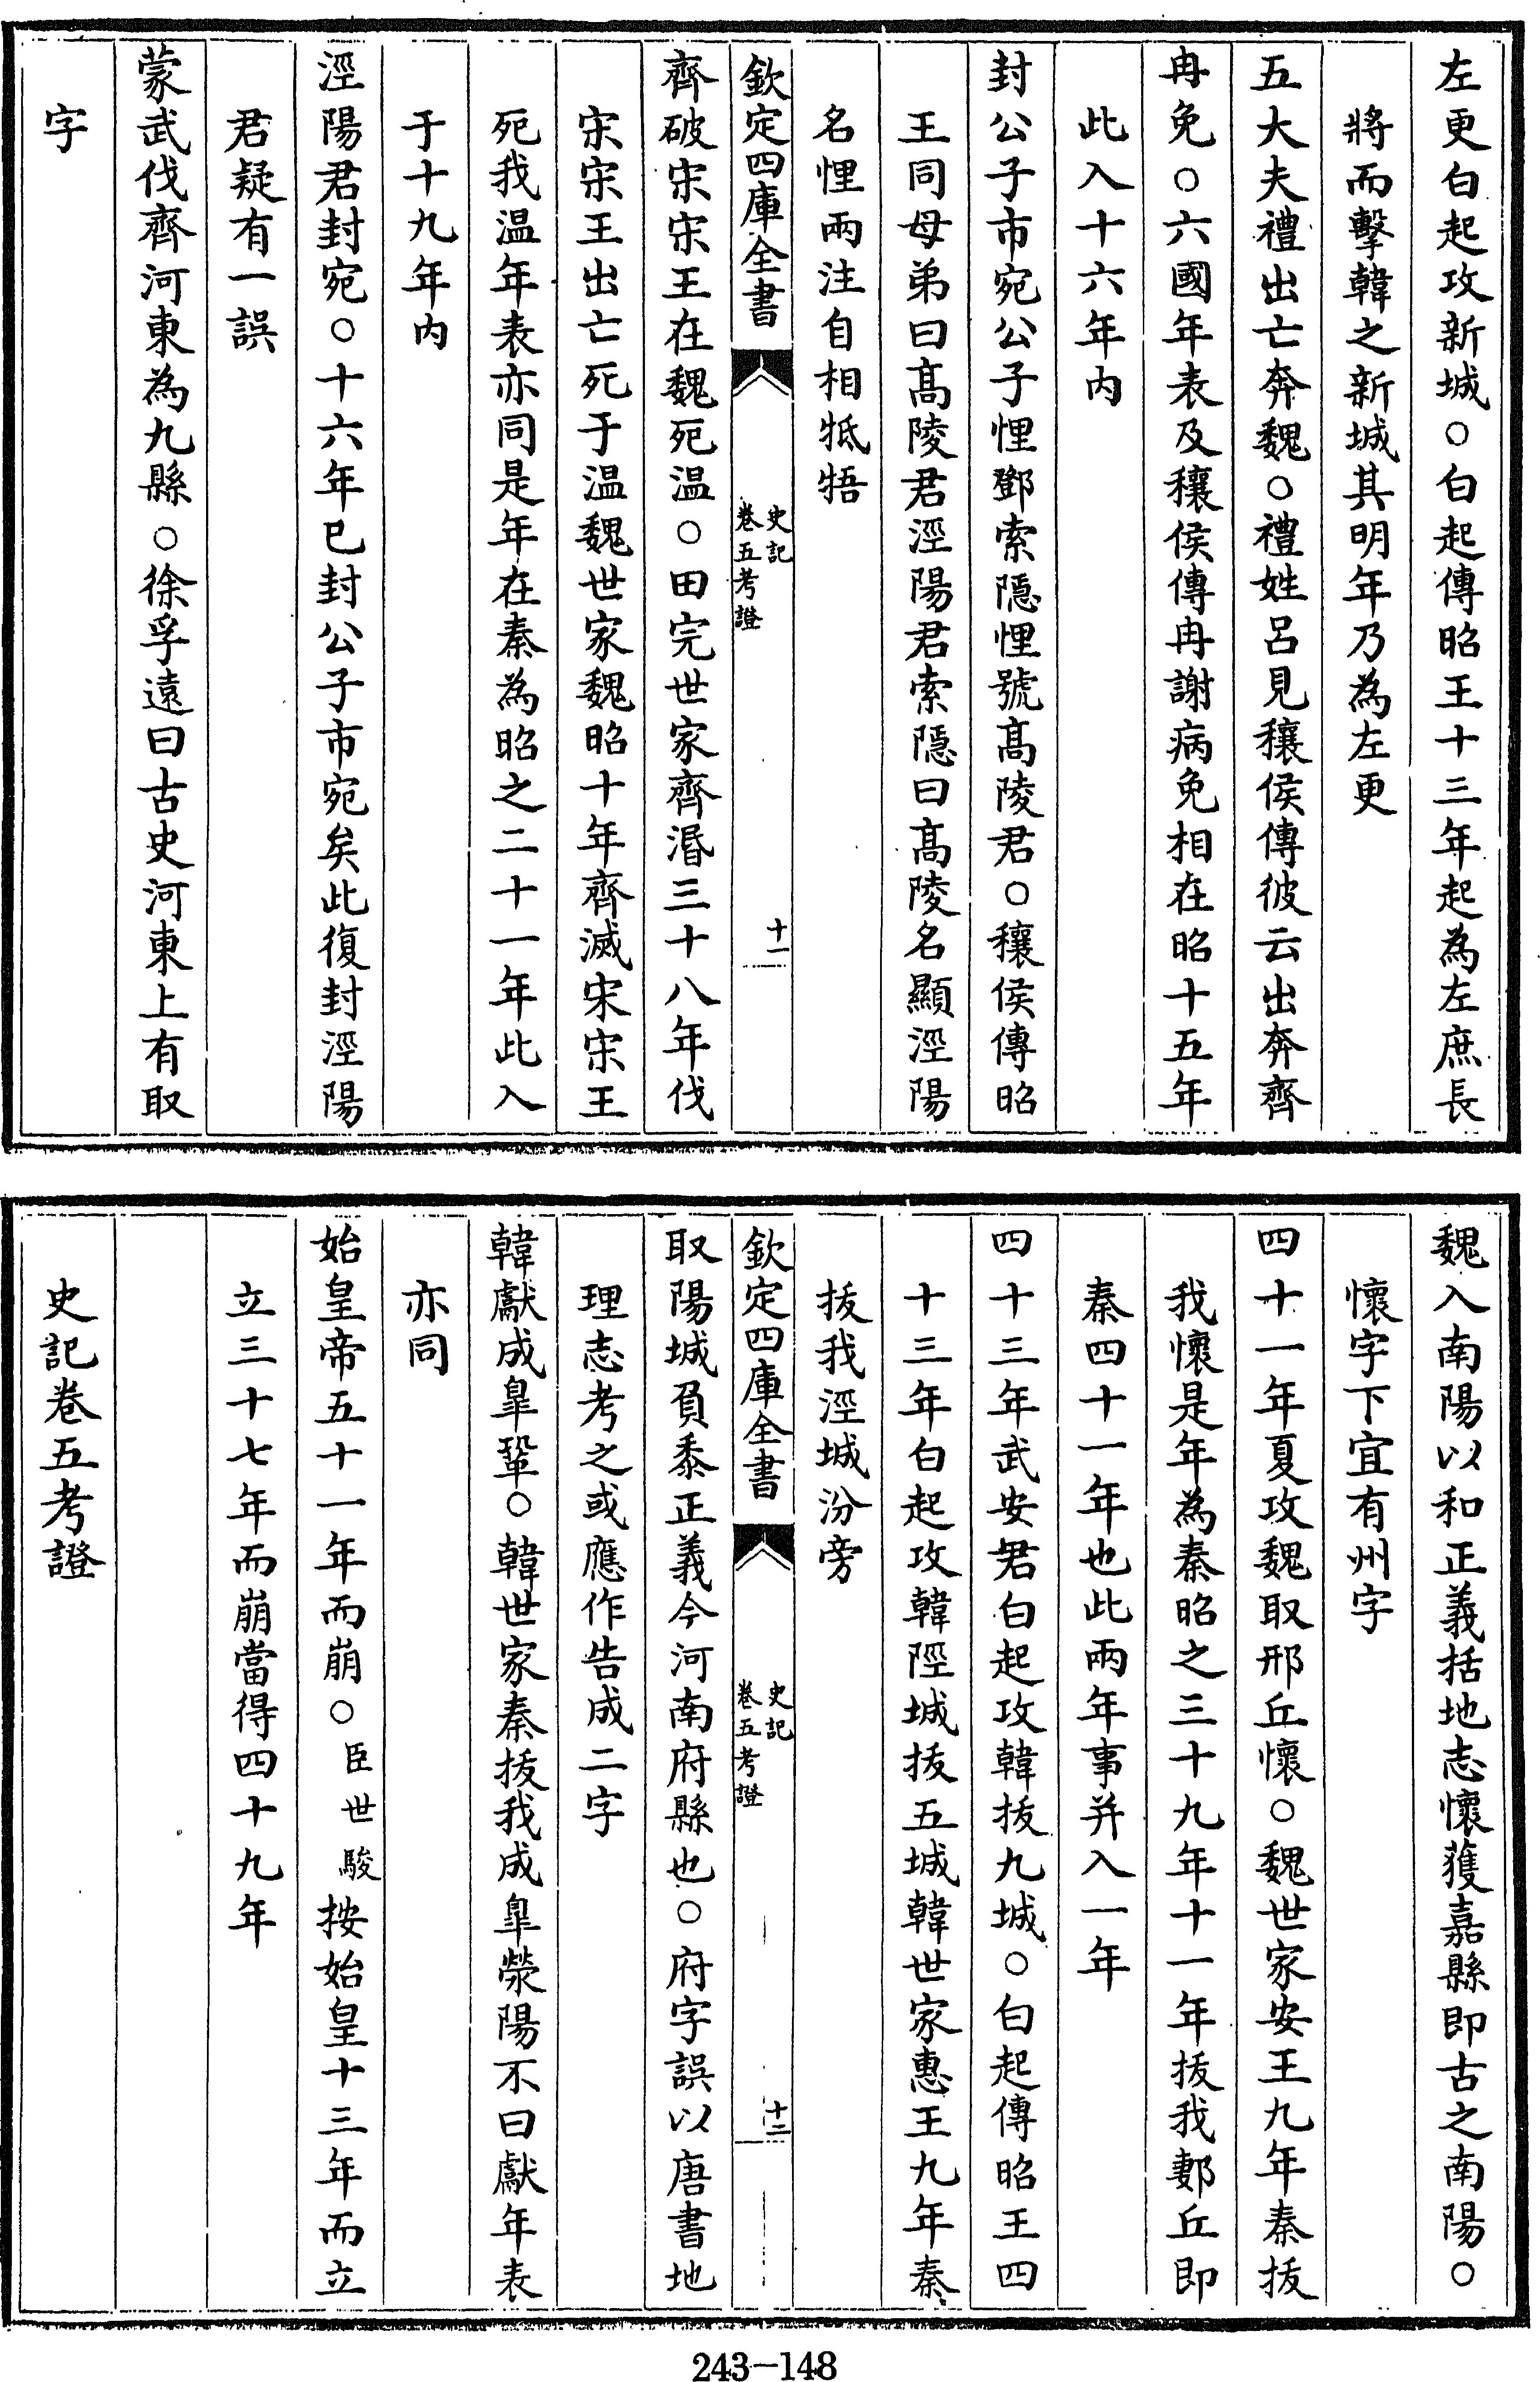 左更白起攻新城○白起傳昭王十三年起為左庶長
將而擊韓之新城其明年乃為左更
五大夫禮出亡奔魏○禮姓呂見穰侯傳彼云出奔齊
冉免○六國年表及穰侯傳冉謝病免相在昭十五年
此入十六年内
封公子市宛公子悝鄧索隱悝號髙陵君○穰侯傳昭
王同母弟曰髙陵君涇陽君索隱曰髙陵名顯涇陽
名悝兩注自相牴牾
欽定四庫全書
史記
卷五考證
十一
齊破宋宋王在魏死温○田完世家齊湣三十八年伐
宋宋王出亡死于温魏世家魏昭十年齊滅宋宋王
死我温年表亦同是年在秦為昭之二十一年此入
于十九年内
涇陽君封宛○十六年已封公子市宛矣此復封涇陽
君疑有一誤
蒙武伐齊河東為九縣○徐孚遠曰古史河東上有取
字
魏入南陽以和正義括地志懷獲嘉縣即古之南陽○
懷字下宜有州字
四十一年夏攻魏取邢丘懷○魏世家安王九年秦拔
我懷是年為秦昭之三十九年十一年拔我郪丘即
秦四十一年也此兩年事并入一年
四十三年武安君白起攻韓拔九城○白起傳昭王四
十三年白起攻韓陘城拔五城韓世家惠王九年秦
拔我涇城汾旁
欽定四庫全書
史記
卷五考證
十二
取陽城負黍正義今河南府縣也○府字誤以唐書地
理志考之或應作告成二字
韓獻成臯鞏○韓世家秦拔我成臯滎陽不曰獻年表
亦同
始皇帝五十一年而崩○臣世駿按始皇十三年而立
立三十七年而崩當得四十九年
史記卷五考證
243-148